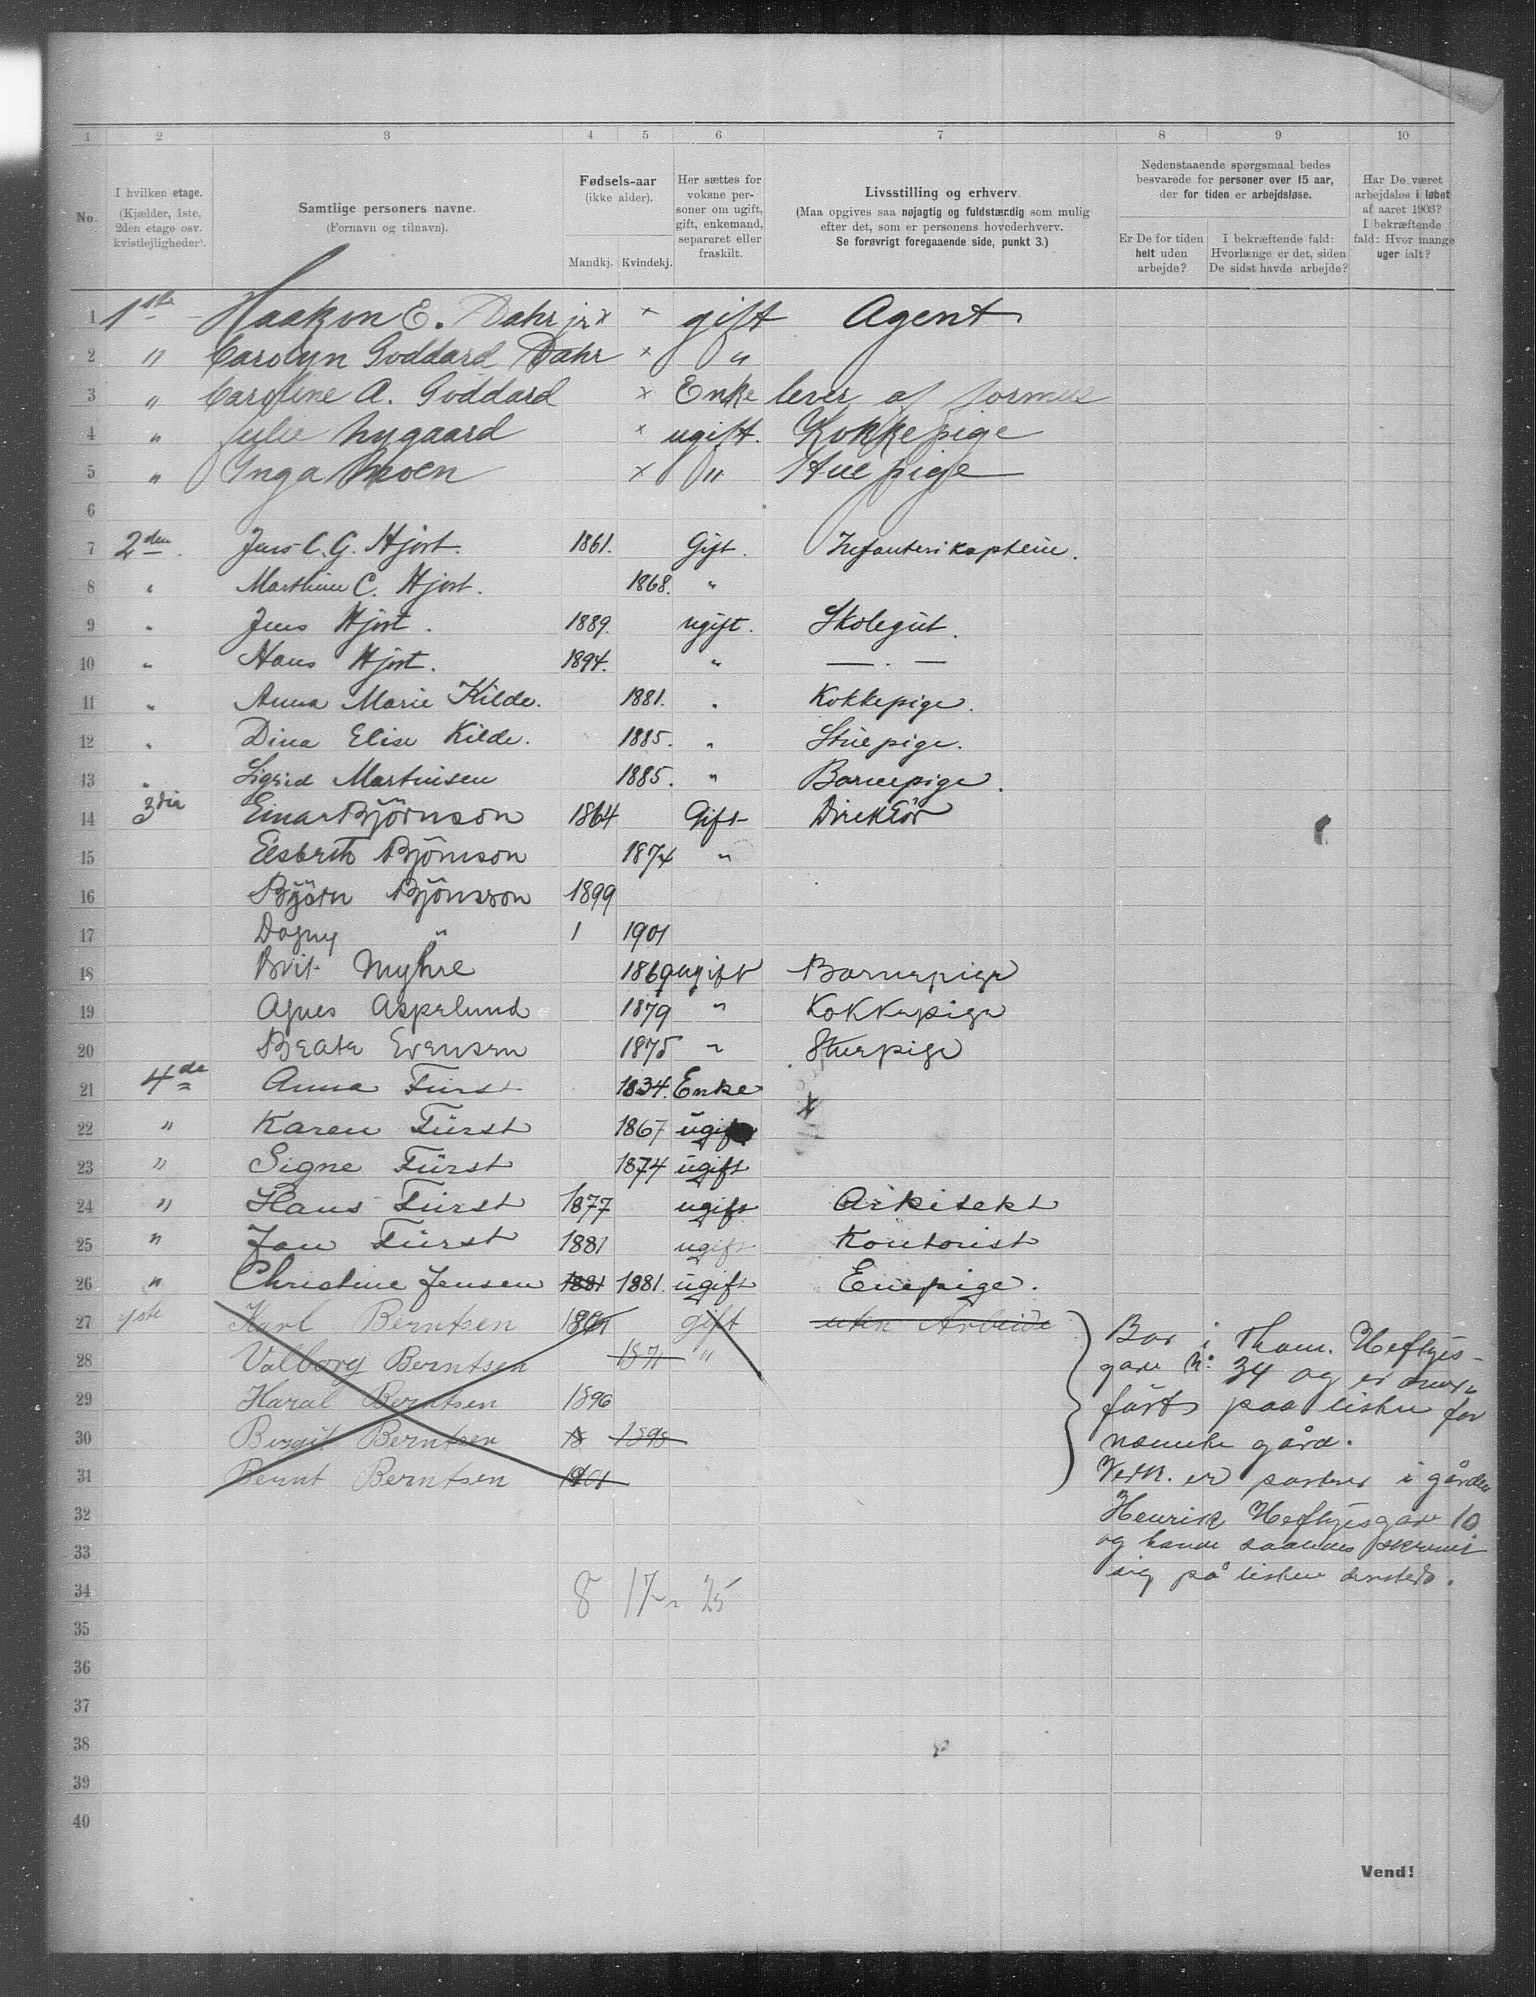 1 2 3 4 5 6 7 8 9 10
No.
I hvilken etage.
(Kjælder, 1ste,
2den etage osv.
kvistlejligheder).
Samtlige personers navne.
(Fornavn og tilnavn).
Fødsels-aar
(ikke alder).
Mandkj. Kvindekj.
Her sættes for
voksne per-
soner om ugift,
gift, enkemand,
separeret eller
fraskilt.
Livsstilling og erhverv.
(Maa opgives saa nøjagtig og fuldstærdig som mulig
efter det, som er personens hovederhverv.
Se forøvrigt foregaaende side, punkt 3.)
Nedenstaaende spørgsmaal bedes
besvarede for personer over 15 aar,
der for tiden er arbejdsløse.
Er De for tiden
helt uden
arbejde?
I bekræftende fald:
Hvorlænge er det, siden
De sidst havde arbejde?
Har De været
arbejdsløs i løbet
af aaret 1903?
I bekræftende
fald: Hvor mange
uger ialt?
1 1ste Haakon E. Dahr jr x x gift Agent
2 " Carolyn Goddard Dahr x "
3 " Caroline A. Goddard x Enke lever af formue
4 " Julie Nygaard x ugift. Kokkepige
5 " Inga Moen x " Stuepige
6
7 2den Jens C. G. Hjort. 1861. Gift. Infanterikaptein.
8 " Marthine C. Hjort. 1868. "
9 " Jens Hjort. 1889. ugift. Skolegut.
10 " Hans Hjort. 1894. " — . —
11 " Anna Marie Kilde. 1881. " Kokkepige.
12 " Dina Elise Kilde. 1885. " Stuepige.
13 " Sigrid Martinsen 1885. " Barnepige.
14 3die Einar Björnson 1864 Gift Direktör
15 Elsbeth Björnson 1874 "
16 Björn Björnson 1899
17 Dagny " 1 1901
18 Brit Myhre 1869 ugift Barnepige
19 Agnes Aspelund 1879 " Kokkepige
20 Beate Evensen 1875 " Stuepige
21 4de Anna Fürst 1834. Enke
22 " Karen Fürst 1867 ugift
23 " Signe Fürst 1874 ugift
24 " Hans Fürst 1877 ugift Arkitekt
25 " Jan Fürst 1881 ugift Kontorist
26 " Christine Jensen 1881 1881. ugift Enepige.
27 1ste Karl Berntsen gift uten Arbeide
28 Valborg Berntsen 1871 "
29 Haral Berntsen 1896
30 Birgit Berntsen 18 1898
31 Bernt Berntsen 1901
Bor i Thom. Heftyes-
gade No. 34 og er
fört paa listen for
nævnte gård.
Vedk. er portner i gården
Henrik Heftyesgade 10
og havde saaledes skrevet
sig på listen dersteds.
32
33
34 8 17 25
35
36
37
38
39
40
Vend!